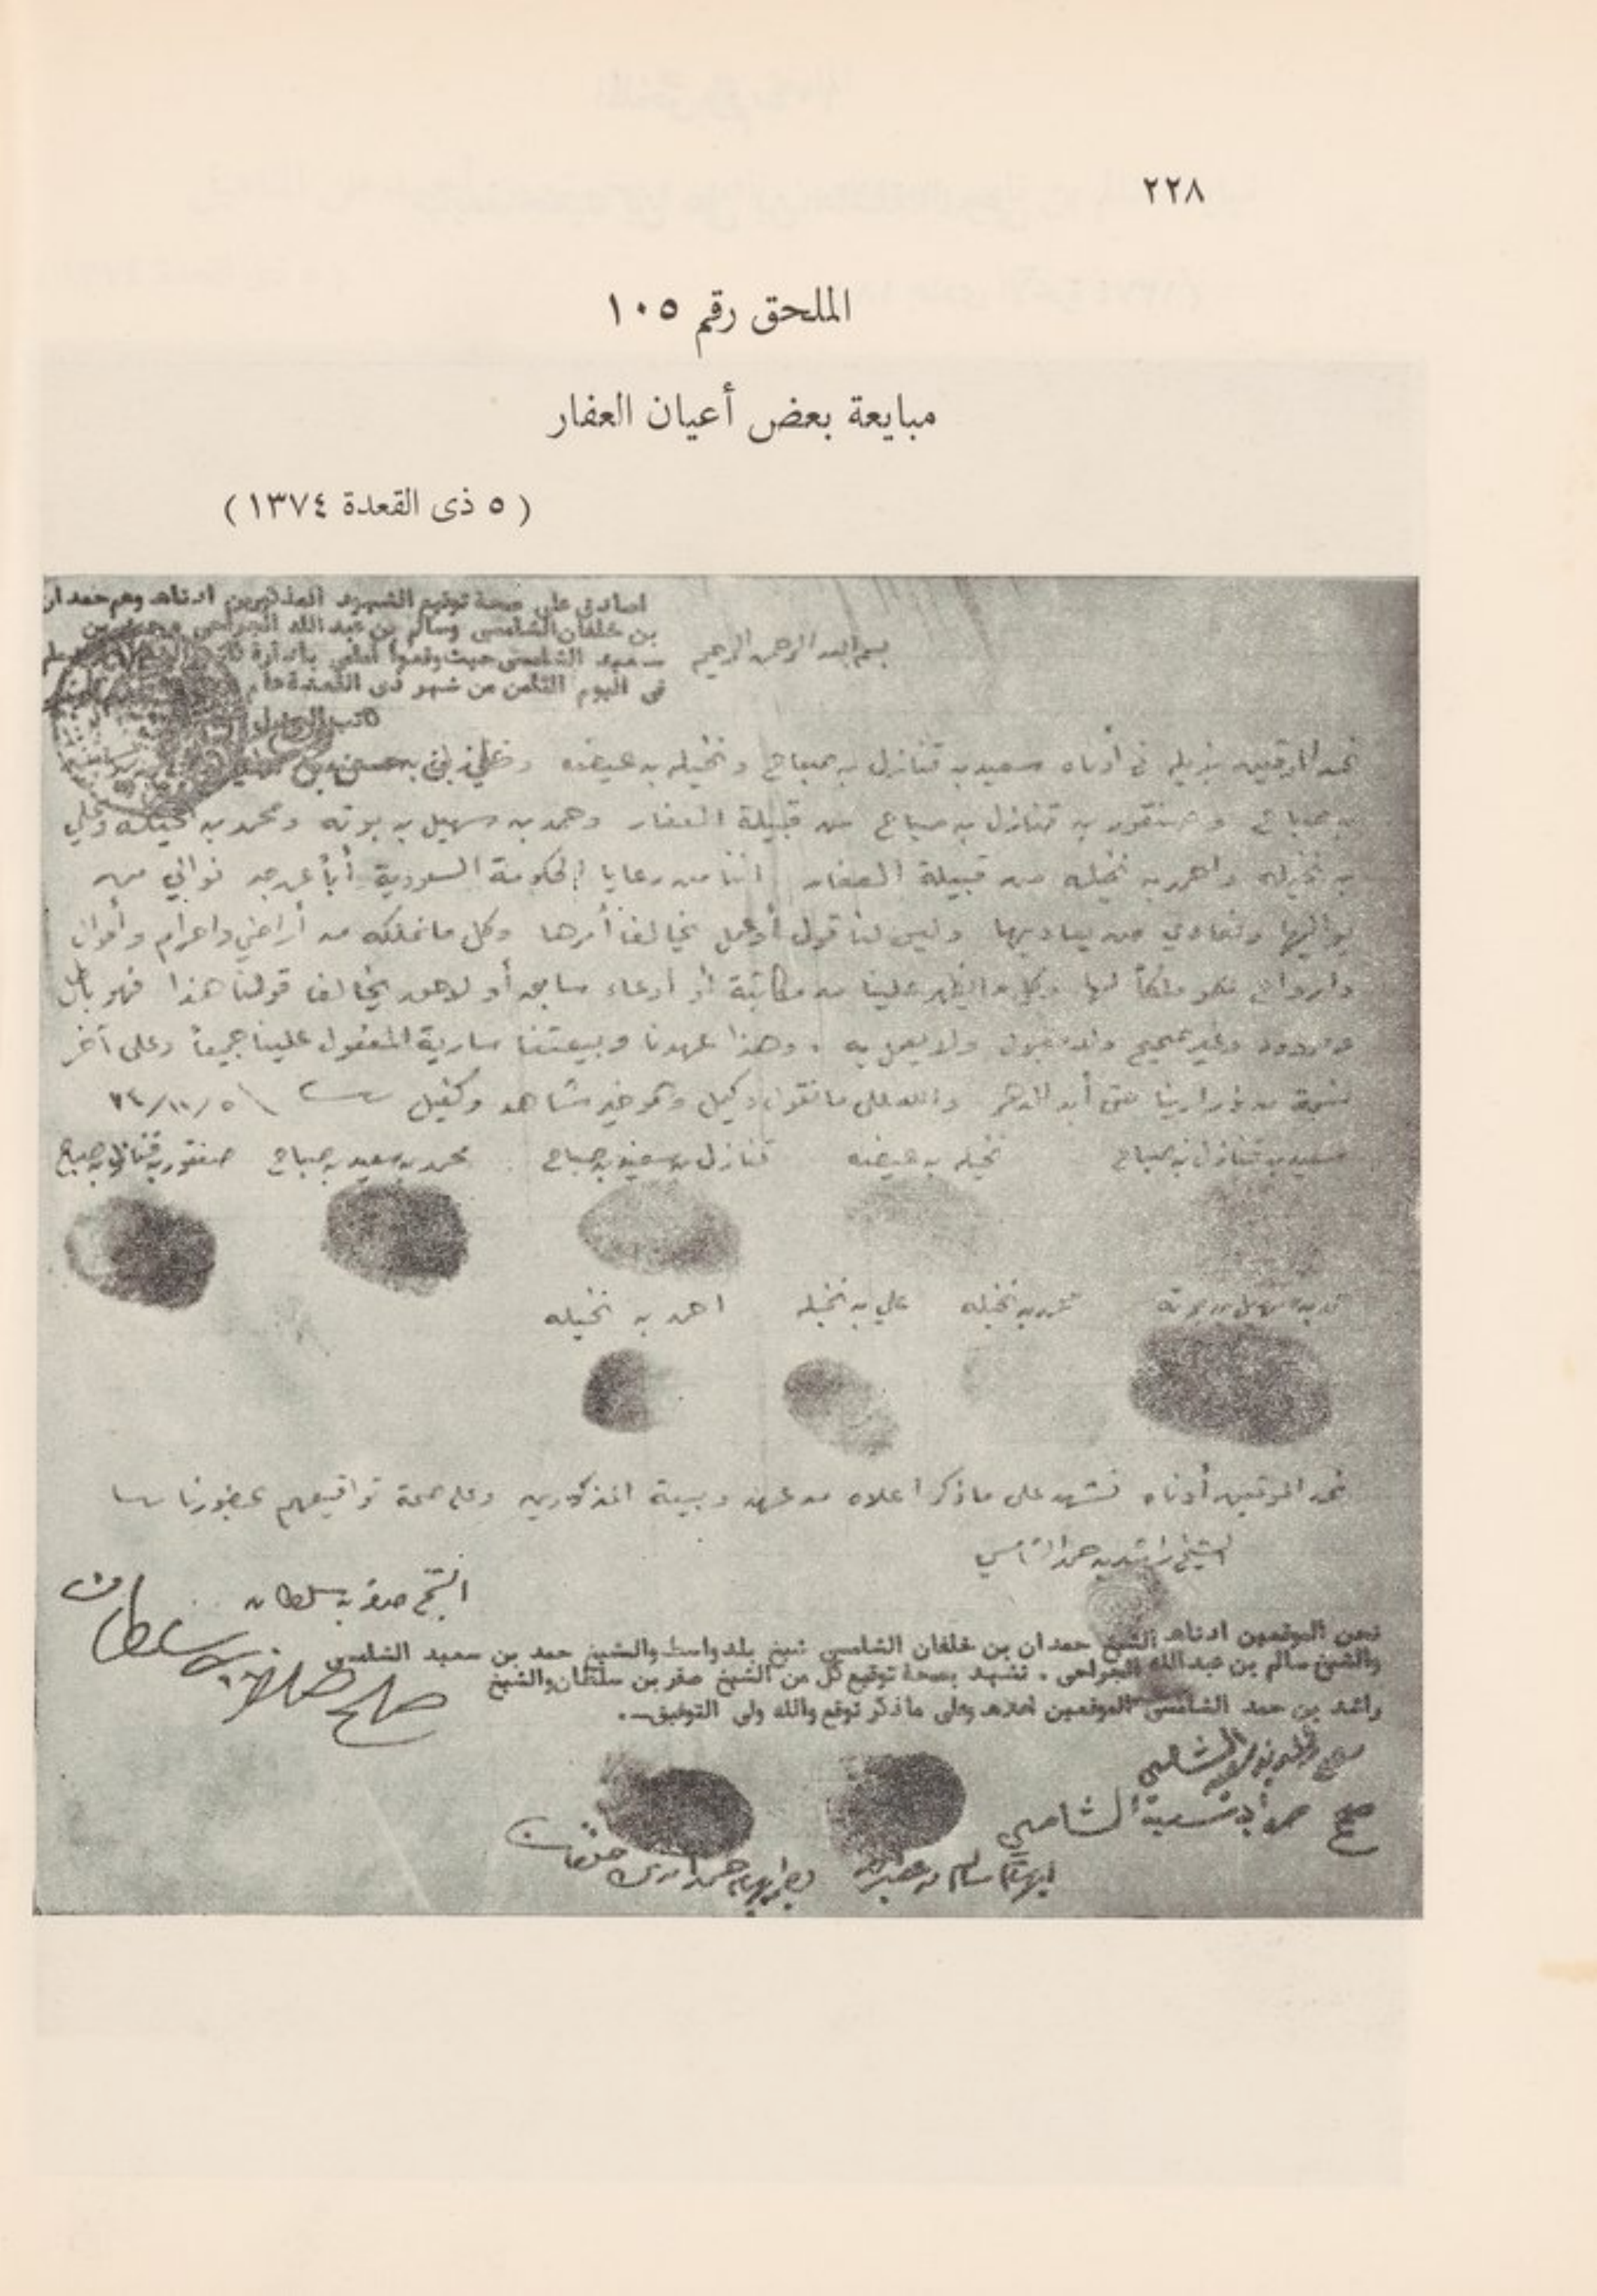 ٢٢٨
الملحق رقم ١٠٥
مبايعة بعض أعيان العفار
( ٥ ذى القعدة ١٣٧٤ )
اصادق على صحة توقيع الشهود المذكورين ادناه وهم حمدان
بن خلفان الشامسى وسالم بن عبد الله الجراحى وحمد بن
سعيد الشامسى حيث وقعوا أمامى بادارة
فى اليوم الثامن من شهر ذى القعدة
كاتب العدل
بسم الله الرحمن الرحيم
نحن الموقعين بذيله فى أدناه سعيد بن قنازل بن صباح ونخيله بن عيضه
بن صباح وصنقور بن قنازل بن صباح من قبيلة العفار وحمد بن سهيل بن بوته ومحمد بن نخيله وعلي
بن نخيله واحمد بن نخيله من قبيلة العفار اننا من رعايا الحكومة السعودية أباً عن جد نوالي من
يواليها ونعادي من يعاديها وليس لنا قول أو عمل يخالف أمرها وكل مانملكه من أراضي واحرام وأموال
وارواح فهو ملكاً لها وكل ما يظهر علينا من مكاتبة أو أدعاء سابق أو لاحق يخالف قولنا هذا فهو باطل
ومردود وغير صحيح ولا مقبول ولا يعمل به . وهذا عهدنا وبيعتنا سارية المفعول علينا جميعاً وعلى آخر
نسمة من ذرارينا حتى أبد الدهر والله على مانقول وكيل وهو خير شاهد وكفيل
سعيد بن قنازل بن صباح نخيله بن عيضه قنازل بن سعيد بن صباح محمد بن سعيد بن صباح صنقور بن قنازل بن صباح
حمد بن سهيل بن بوته محمد بن نخيله علي بن نخيله احمد بن نخيله
نحن الموقعين أدناه نشهد على ماذكر أعلاه من عهد وبيعة المذكورين وعلى صحة تواقيعهم بحضورنا
الشيخ راشد بن حمد الشامسي
الشيخ صقر بن سلطان
نحن الموقعين ادناه الشيخ حمدان بن خلفان الشامسي شيخ بلد واسط والشيخ حمد بن سعيد الشامسى
والشيخ سالم بن عبد الله الجراحى . نشهد بصحة توقيع كل من الشيخ صقر بن سلطان والشيخ
راشد بن حمد الشامسى الموقعين اعلاه وعلى ماذكر نوقع والله ولى التوفيق .